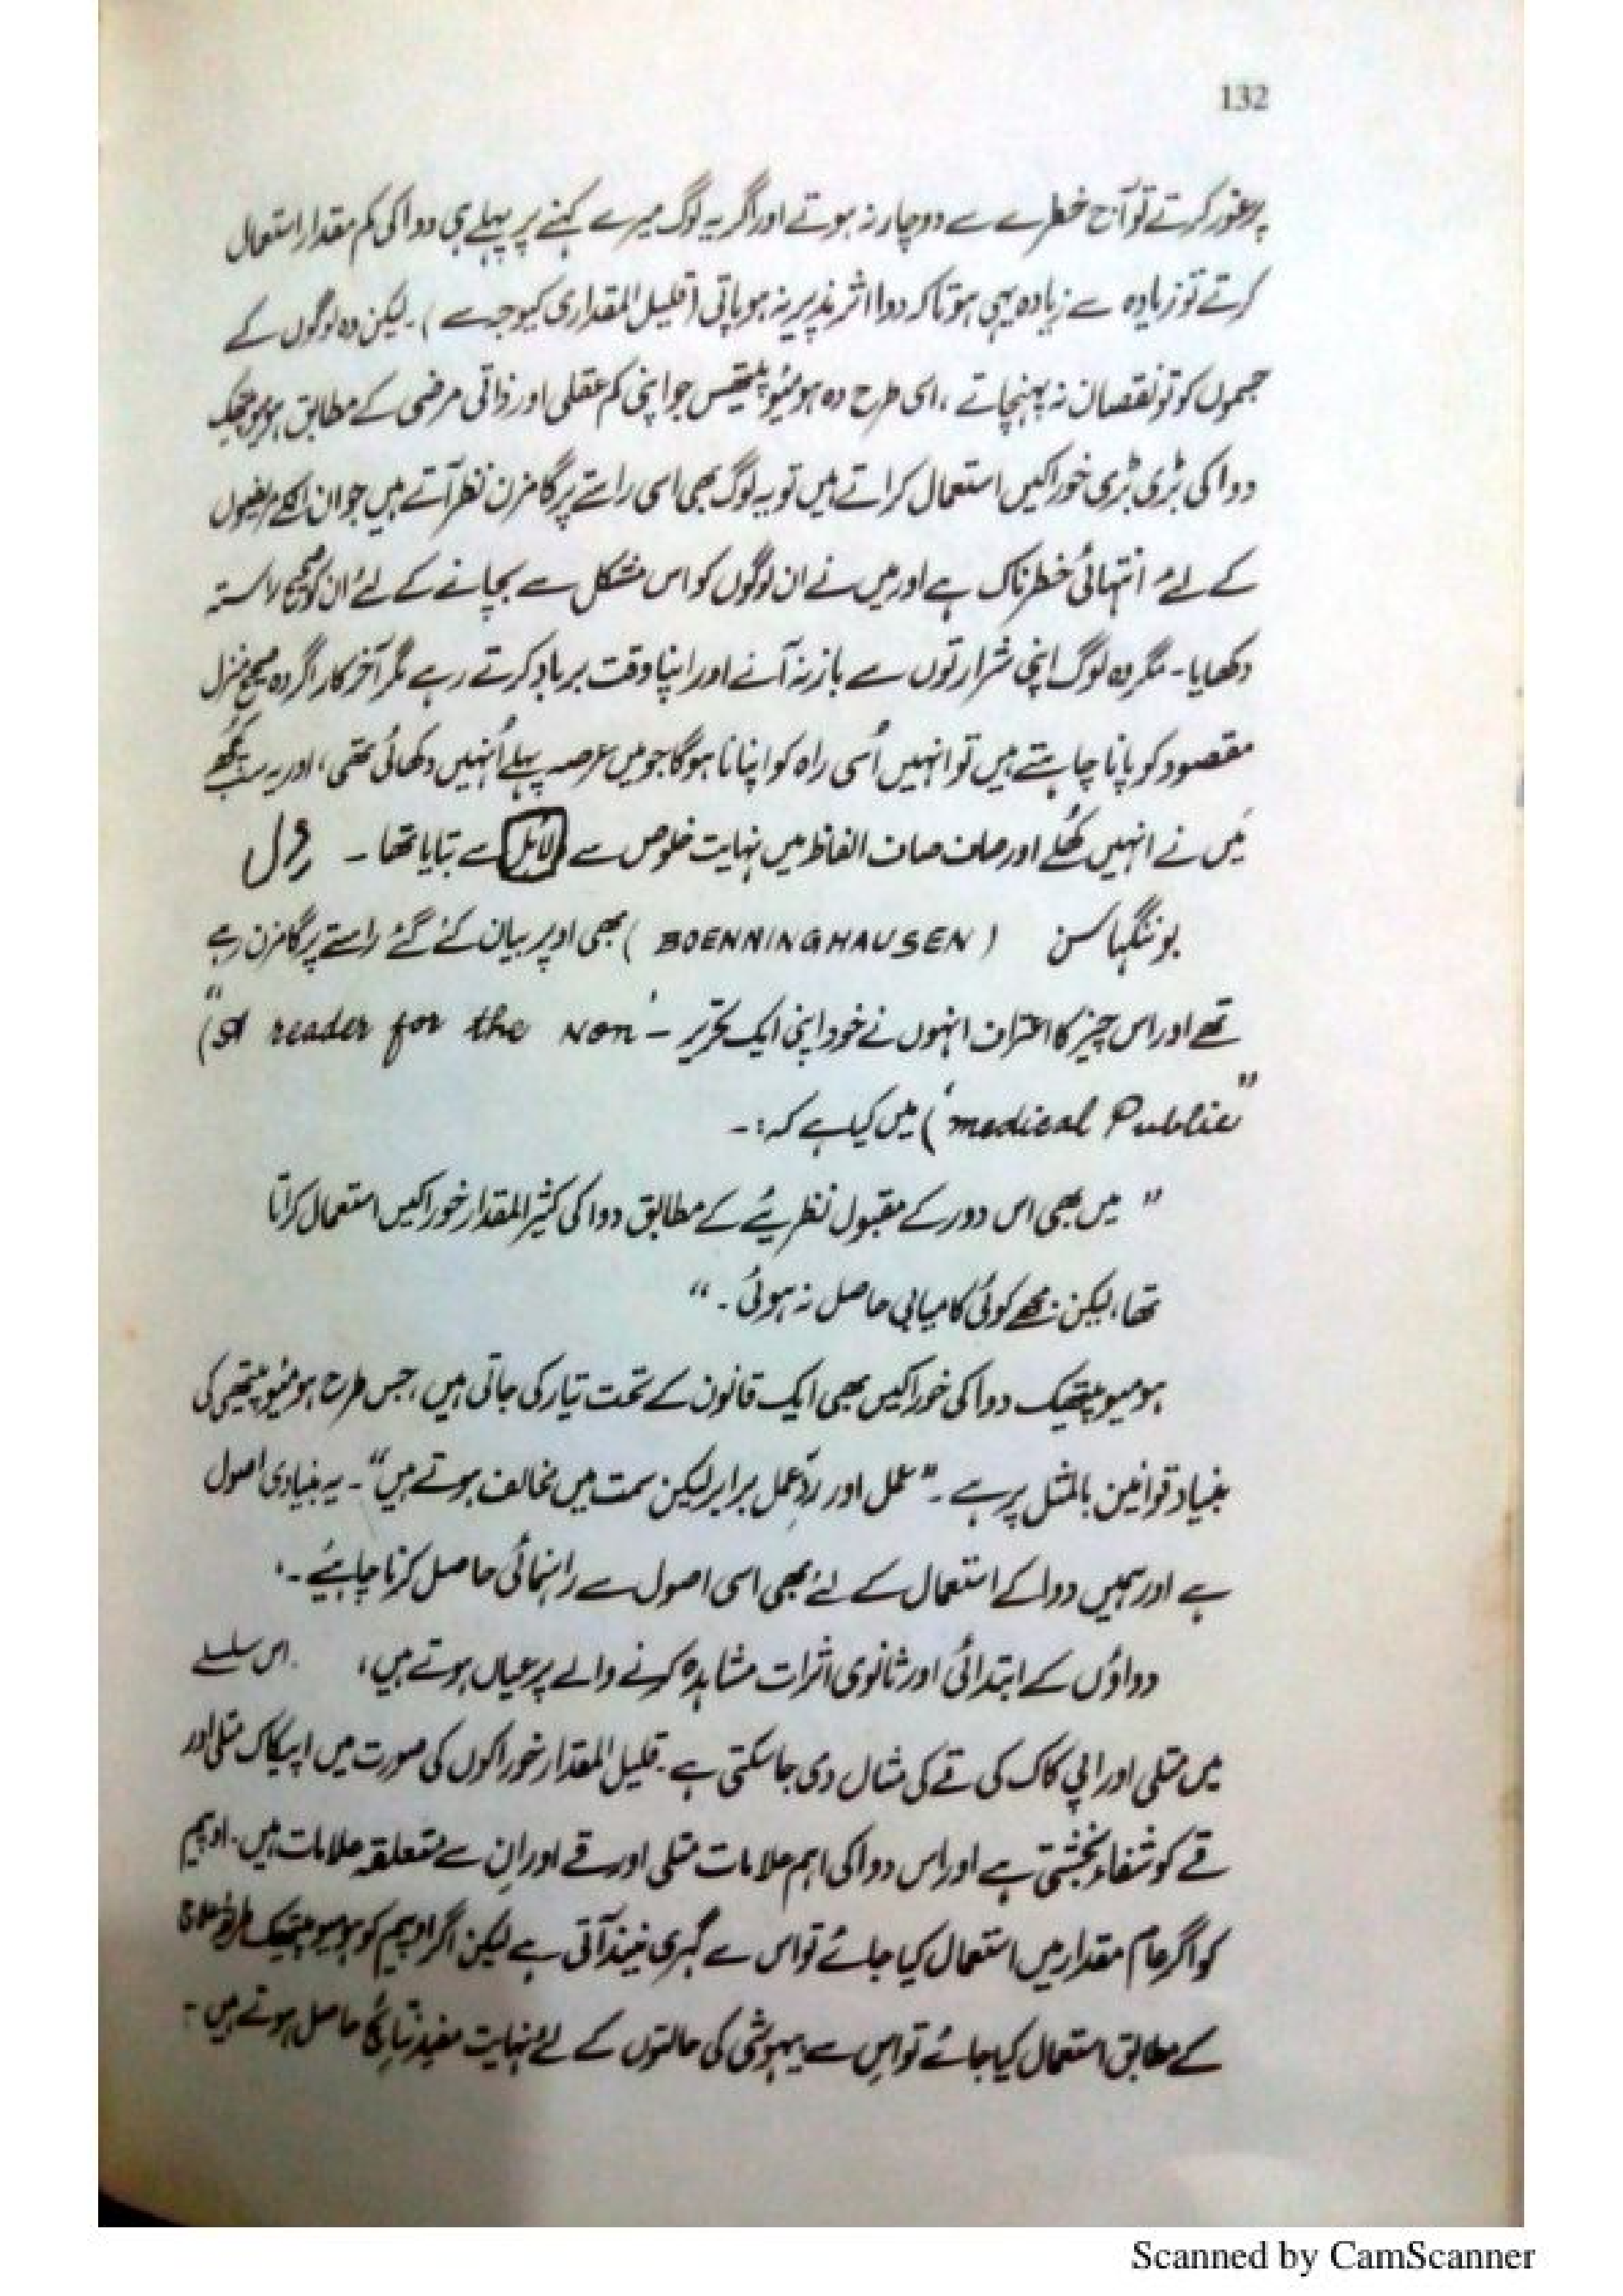 132
پر غور کرتے تو آج خطرے سے دوچار نہ ہوتے اور اگر یہ لوگ میرے کہنے پر پہلے ہی دوا کی کم مقدار استعمال
کرتے تو زیادہ سے زیادہ یہی ہوتا کہ دوا اثر پذیر نہ ہو پاتی (قلیل المقداری کیوجہ سے) ۔ لیکن وہ لوگوں کے
جسموں کو تو نقصان نہ پہنچاتے ، اسی طرح وہ ہومیوپیتھس جو اپنی کم عقلی اور ذاتی مرضی کے مطابق ہومیوپیتھک
دوا کی بڑی بڑی خوراکیں استعمال کراتے ہیں تو یہ لوگ بھی اسی راستے پر گامزن نظر آتے ہیں جو ان کے مریضوں
کے لئے انتہائی خطرناک ہے اور میں نے ان لوگوں کو اس مشکل سے بچانے کے لئے ان کو صحیح راستہ
دکھایا ۔ مگر وہ لوگ اپنی شرارتوں سے باز نہ آئے اور اپنا وقت برباد کرتے رہے مگر آخر کار اگر وہ صحیح منزل
مقصود کو پانا چاہتے ہیں تو انہیں اُسی راہ کو اپنانا ہوگا جو میں عرصہ پہلے اُنہیں دکھائی تھی ، اور یہ سب کچھ
میں نے انہیں کھلے اور صاف صاف الفاظ میں نہایت خلوص سے دلائل سے بتایا تھا ۔
بوننگہاسن (BOENNINGHAUSEN) بھی اوپر بیان کئے گئے راستے پر گامزن رہے
تھے اور اس چیز کا اعتراف انہوں نے خود اپنی ایک تحریر – ("St reader for the Non'
'medical Public") میں کیا ہے کہ :۔
" میں بھی اس دور کے مقبول نظریئے کے مطابق دوا کی کثیر المقدار خوراکیں استعمال کراتا
تھا ، لیکن مجھے کوئی کامیابی حاصل نہ ہوئی ۔ "
ہومیوپیتھک دوا کی خوراکیں بھی ایک قانون کے تحت تیار کی جاتی ہیں ، جس طرح ہومیوپیتھی کی
بنیاد قوانین بالمثل پر ہے ۔ " عمل اور ردِّعمل برابر لیکن سمت میں مخالف ہوتے ہیں " ۔ یہ بنیادی اصول
ہے اور ہمیں دوا کے استعمال کے لئے بھی اسی اصول سے راہنمائی حاصل کرنا چاہیئے ۔
دواؤں کے ابتدائی اور ثانوی اثرات مشاہدہ کرنے والے پر عیاں ہوتے ہیں ، اس سلسلے
میں متلی اور اپی کاک کی قے کی مثال دی جاسکتی ہے ۔ قلیل المقدار خوراکوں کی صورت میں اپیکاک متلی اور
قے کو شفاء بخشتی ہے اور اس دوا کی اہم علامات متلی اور قے اور ان سے متعلقہ علامات ہیں ۔ اوپیم
کو اگر عام مقدار میں استعمال کیا جائے تو اس سے گہری نیند آتی ہے لیکن اگر اوپیم کو ہومیوپیتھک طریقۂ علاج
کے مطابق استعمال کیا جائے تو اس سے بیہوشی کی حالتوں کے لئے نہایت مفید نتائج حاصل ہوتے ہیں ۔
Scanned by CamScanner